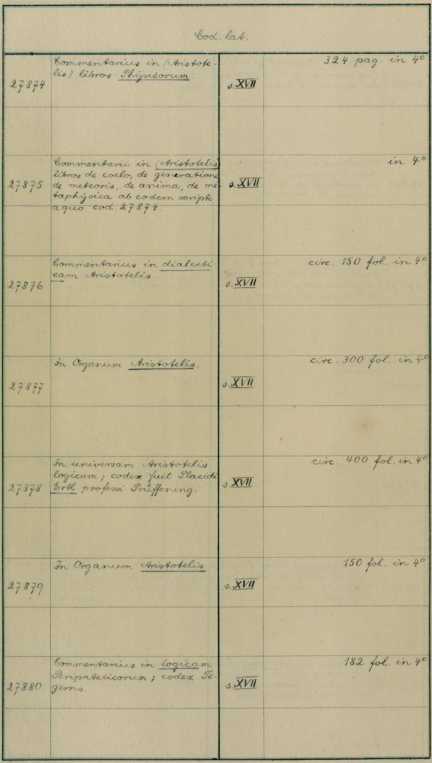 Cod. lat.
27874
Commentarius in (Aristote-
lis) libros Physicorum
s. XVII
324 pag. in 4º
27875
Commentarii in (Aristotelis)
libros de coelo, de generatione
de meteoris, de anima, de me
taphysica ab eodem scripto
a quo cod. 27874
s. XVII
in 4º
27876
Commentarius in dialecti
cam Aristotelis.
s. XVII
circ. 150 fol. in 4º
27877
In Organum Aristotelis.
s. XVII
circ. 300 fol. in 4º
27878
In universam Aristotelis
logicam; codex fuit Placidi
Ertl professi Prüffening.
s. XVII
circ. 400 fol. in 4º
27879
In Organum Aristotelis
s. XVII
150 fol. in 4º
27880
Commentarius in logicam
Peripateticorum; codex Te-
gerns.
s. XVII
182 fol. in 4º